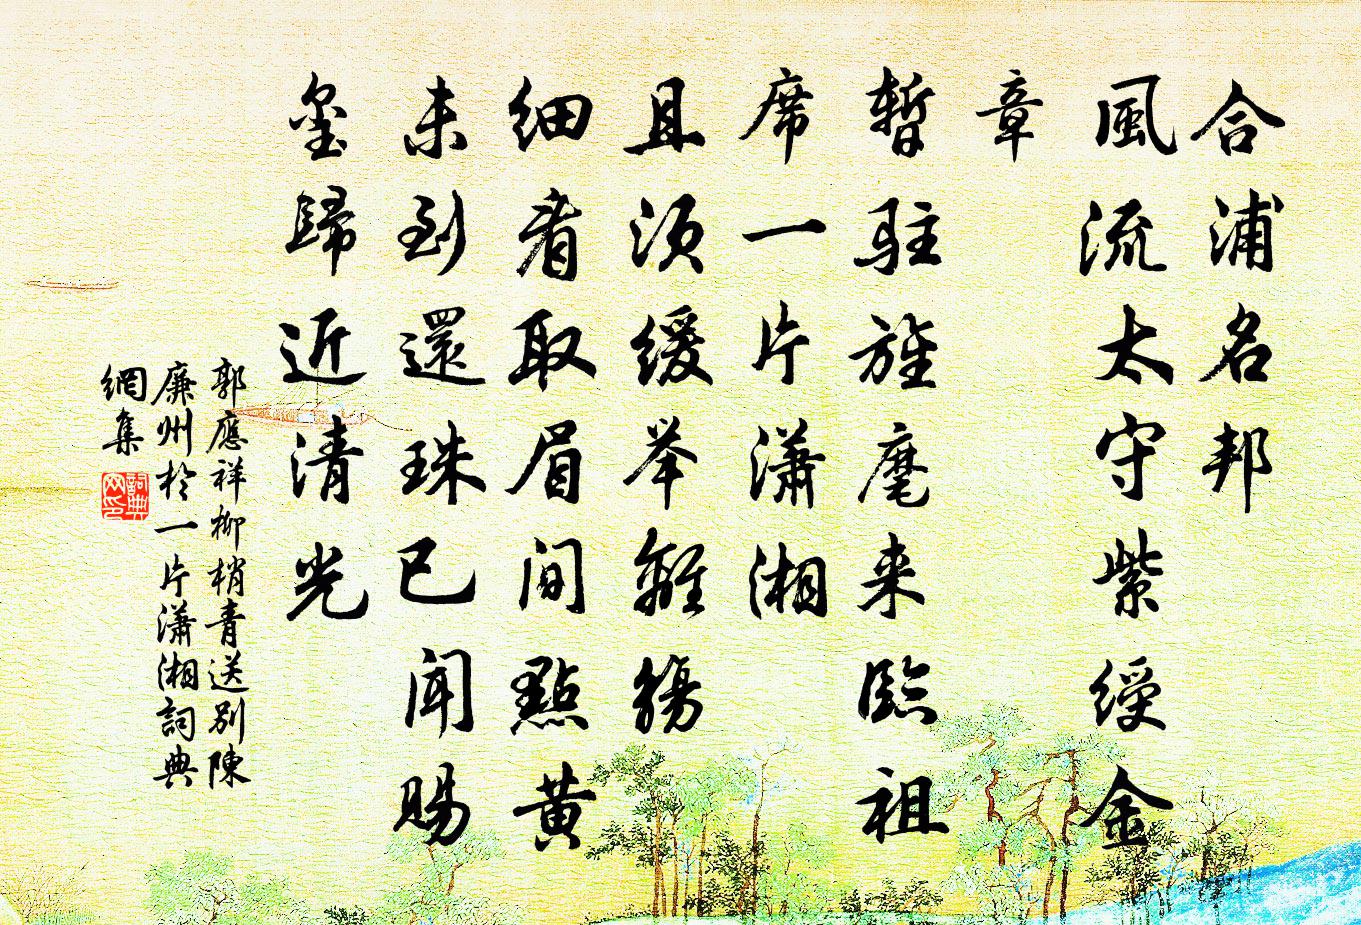 合浦名邦
風流太守紫綬金
章
暫駐旌麾来臨祖
席一片瀟湘
且須緩举離觴
細看取眉間點黄
未到還珠已聞賜
璽歸近清光
郭應祥柳梢青送别陳
廉州於一片瀟湘詞典
網集
詞典網印